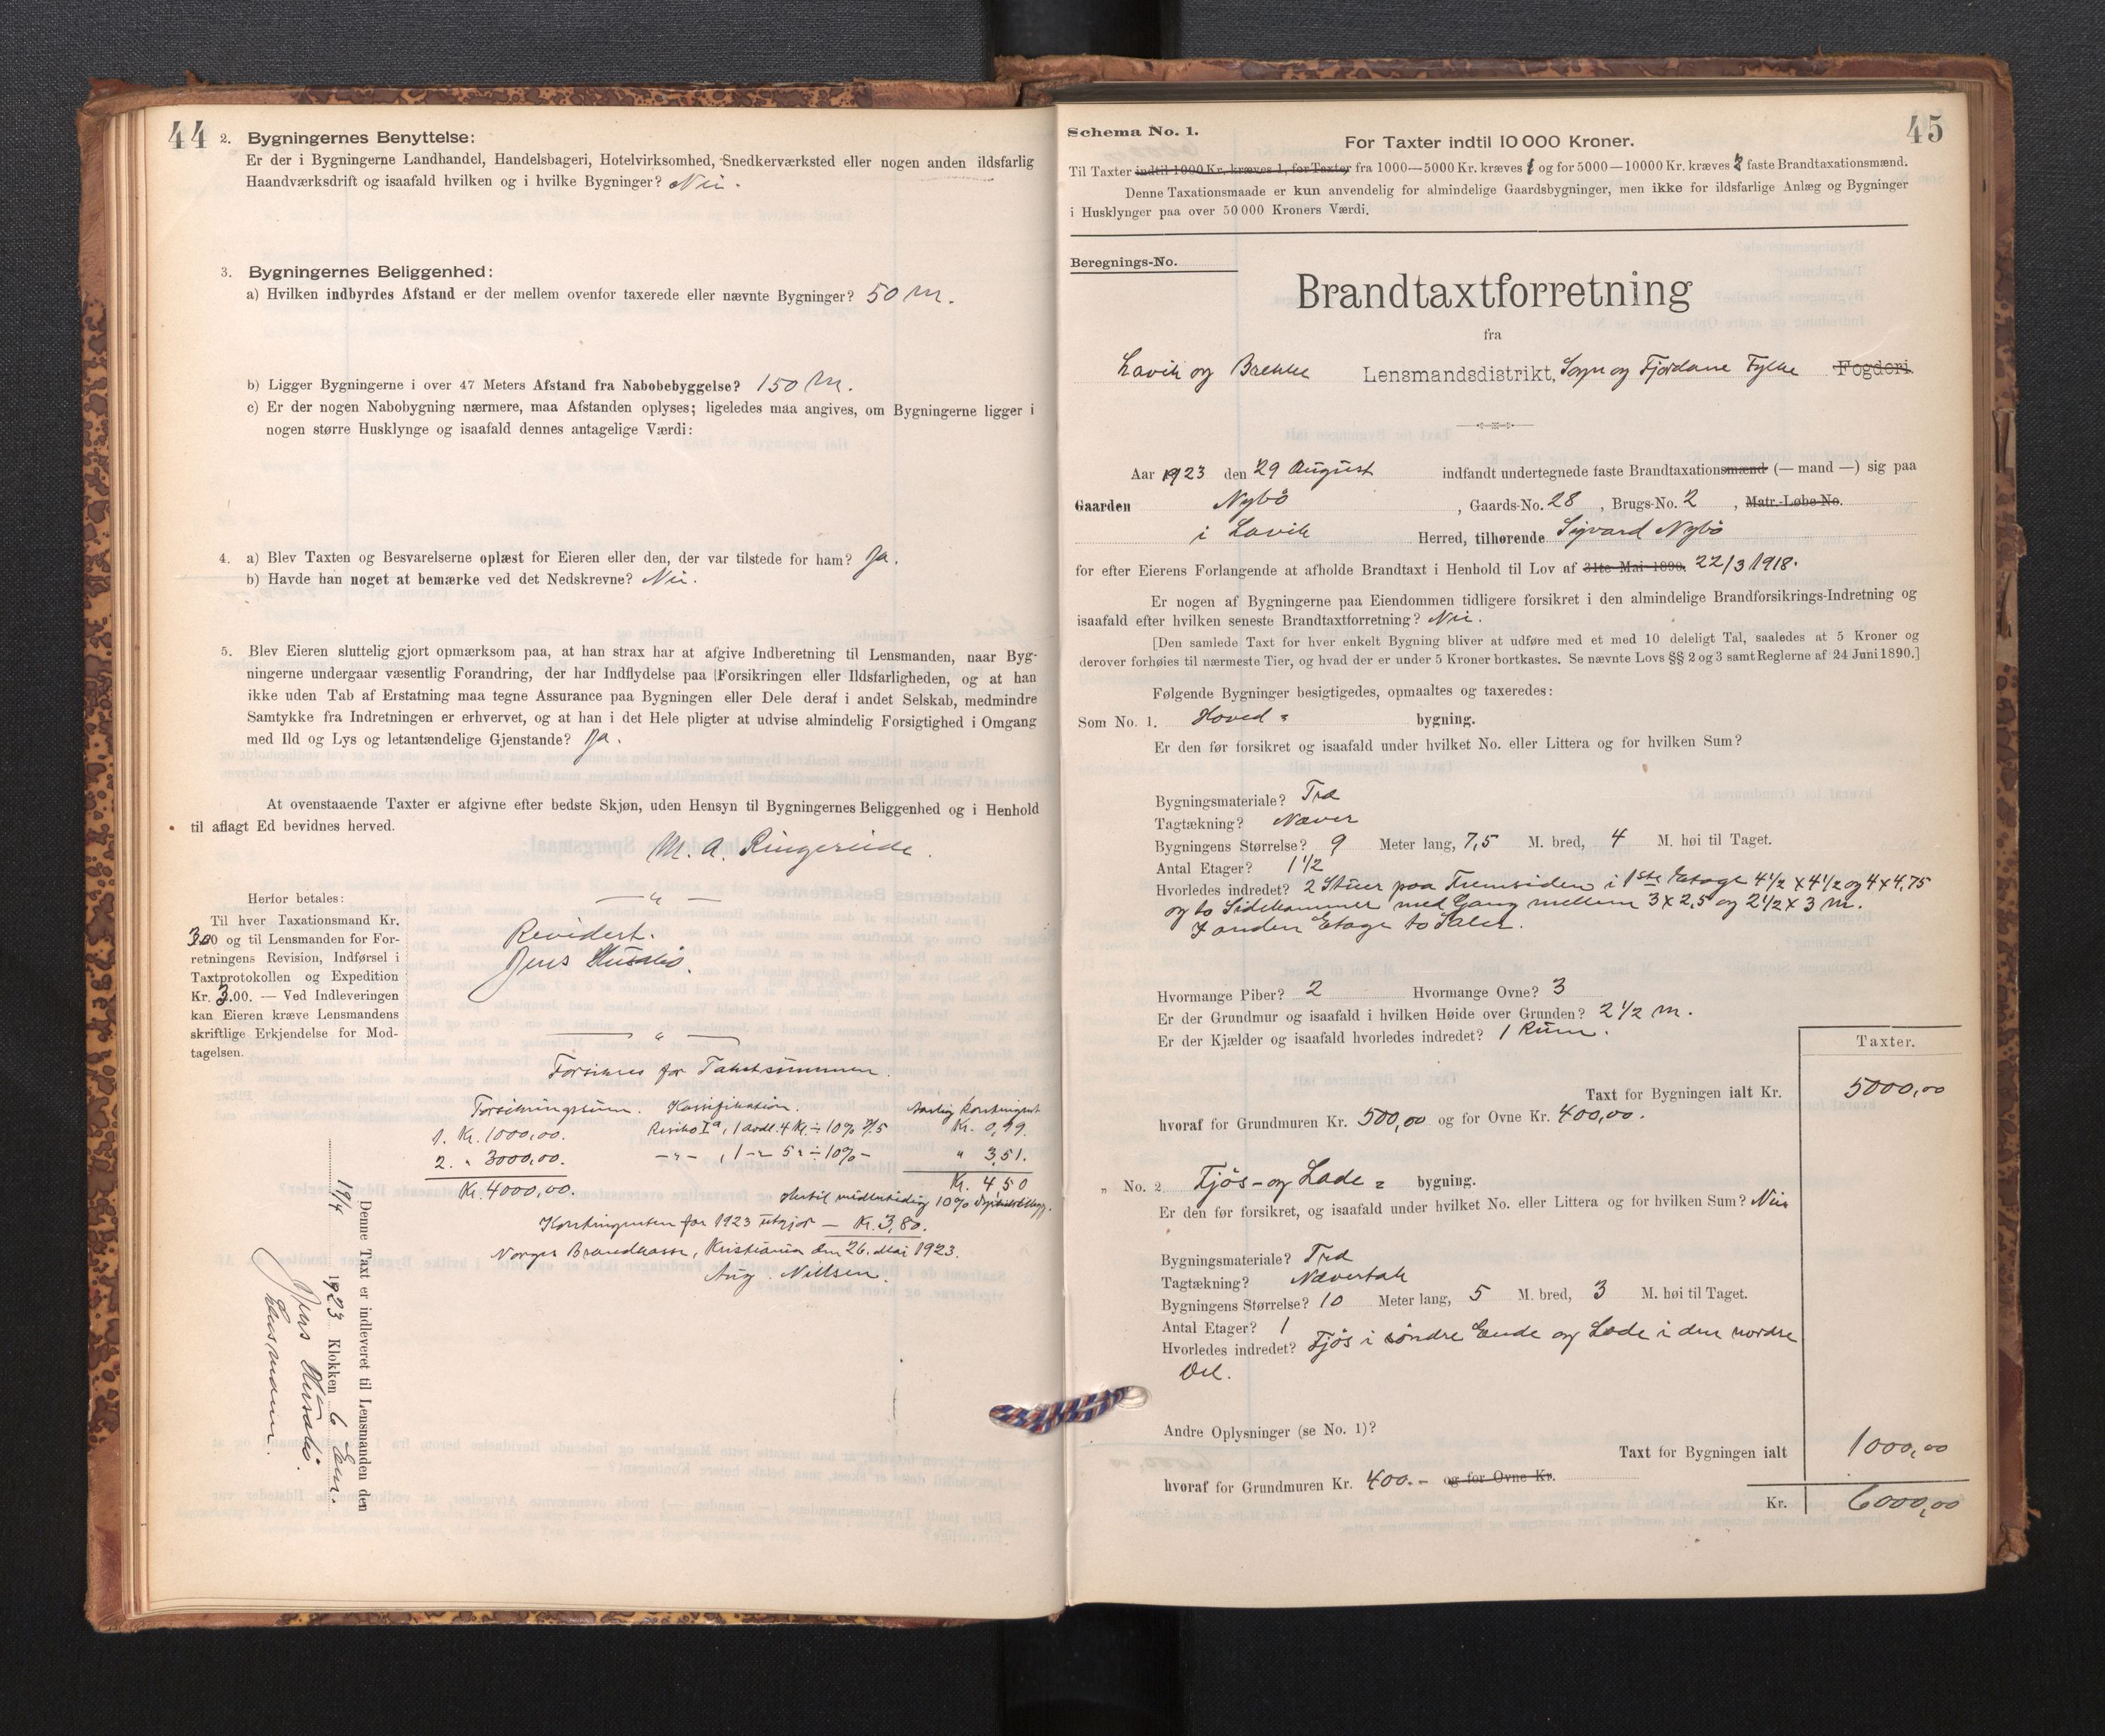 44
2. Bygningernes Benyttelse:
Er der i Bygningerne Landhandel, Handelsbageri, Hotelvirksomhed, Snedkerværksted eller nogen anden ildsfarlig
Haandværksdrift og isaafald hvilken og i hvilke Bygninger? Nei.
3. Bygningernes Beliggenhed:
a) Hvilken indbyrdes Afstand er der mellem ovenfor taxerede eller nævnte Bygninger? 50 m.
b) Ligger Bygningerne i over 47 Meters Afstand fra Nabobebyggelse? 150 m.
c) Er der nogen Nabobygning nærmere, maa Afstanden oplyses; ligeledes maa angives, om Bygningerne ligger i
nogen større Husklynge og isaafald dennes antagelige Værdi:
4. a) Blev Taxten og Besvarelserne oplæst for Eieren eller den, der var tilstede for ham? Ja.
b) Havde han noget at bemærke ved det Nedskrevne? Nei.
5. Blev Eieren sluttelig gjort opmærksom paa, at han strax har at afgive Indberetning til Lensmanden, naar Byg-
ningerne undergaar væsentlig Forandring, der har Indflydelse paa Forsikringen eller Ildsfarligheden, og at han
ikke uden Tab af Erstatning maa tegne Assurance paa Bygningen eller Dele deraf i andet Selskab, medmindre
Samtykke fra Indretningen er erhvervet, og at han i det Hele pligter at udvise almindelig Forsigtighed i Omgang
med Ild og Lys og letantændelige Gjenstande? Ja.
At ovenstaaende Taxter er afgivne efter bedste Skjøn, uden Hensyn til Bygningernes Beliggenhed og i Henhold
til aflagt Ed bevidnes herved.
M. A. Ringereide.
Herfor betales:
Til hver Taxationsmand Kr.
3.00 og til Lensmanden for For-
retningens Revision, Indførsel i
Taxtprotokollen og Expedition
Kr. 3.00. — Ved Indleveringen
kan Eieren kræve Lensmandens
skriftlige Erkjendelse for Mod-
tagelsen.
Revidert.
Jens Husabø.
Forsikres for Takstsummen.
Forsikringssum. Klassifikation. Aarlig kontingent
1. Kr. 1000,00. Risiko Iª, 1 avdl. 4 Kl. ÷ 10% Kr. 0,99
2. " 3000,00. — " — , 1 — 5 " ÷ 10% — " 3,51.
Kr. 4000,00. Kr. 4 50
Hertil midlertidig 10%
Kontingenten for 1923 utgjør — Kr. 3,80.
Norges Brandkasse, Kristiania den 26. Mai 1923.
Aug. Nilssen.
Denne Taxt er indleveret til Lensmanden den
19/4 1923 Klokken 6 Em.
Jens Husabø.
Lensmann.
45
Schema No. 1.
For Taxter indtil 10 000 Kroner.
Til Taxter indtil 1000 Kr. kræves 1, for Taxter fra 1000—5000 Kr. kræves 1 og for 5000—10000 Kr. kræves 2 faste Brandtaxationsmænd.
Denne Taxationsmaade er kun anvendelig for almindelige Gaardsbygninger, men ikke for ildsfarlige Anlæg og Bygninger
i Husklynger paa over 50 000 Kroners Værdi.
Beregnings-No.
Brandtaxtforretning
fra
Lavik og Brekke Lensmandsdistrikt, Sogn og Fjordane Fylke Fogderi
Aar 1923 den 29 August indfandt undertegnede faste Brandtaxationsmænd (— mand —) sig paa
Gaarden Nybø, Gaards-No. 28, Brugs-No. 2, Matr.-Løbe-No.
i Lavik Herred, tilhørende Sigvard Nybø
for efter Eierens Forlangende at afholde Brandtaxt i Henhold til Lov af 31te Mai 1890. 22/3 1918.
Er nogen af Bygningerne paa Eiendommen tidligere forsikret i den almindelige Brandforsikrings-Indretning og
isaafald efter hvilken seneste Brandtaxtforretning? Nei.
[Den samlede Taxt for hver enkelt Bygning bliver at udføre med et med 10 deleligt Tal, saaledes at 5 Kroner og
derover forhøies til nærmeste Tier, og hvad der er under 5 Kroner bortkastes. Se nævnte Lovs §§ 2 og 3 samt Reglerne af 24 Juni 1890.]
Følgende Bygninger besigtigedes, opmaaltes og taxeredes:
Som No. 1. Hoved = bygning.
Er den før forsikret og isaafald under hvilket No. eller Littera og for hvilken Sum?
Bygningsmateriale? Træ
Tagtækning? Næver
Bygningens Størrelse? 9 Meter lang, 7,5 M. bred, 4 M. høi til Taget.
Antal Etager? 1 1/2
Hvorledes indredet? 2 Stuer paa Fremsiden i 1ste Etage 4 1/2 x 4 1/2 og 4 x 4,75
og to Sidekammer med Gang mellem 3 x 2,5 og 2 1/2 x 3 m.
I anden Etage to Saler.
Hvormange Piber? 2 Hvormange Ovne? 3
Er der Grundmur og isaafald i hvilken Høide over Grunden? 2 1/2 m.
Er der Kjælder og isaafald hvorledes indredet? 1 Rum.
Taxter.
Taxt for Bygningen ialt Kr. 5000,00
hvoraf for Grundmuren Kr. 500,00 og for Ovne Kr. 400,00.
" No. 2 Fjøs- og Lade = bygning.
Er den før forsikret, og isaafald under hvilket No. eller Littera og for hvilken Sum? Nei
Bygningsmateriale? Træ
Tagtækning? Nævertak
Bygningens Størrelse? 10 Meter lang, 5 M. bred, 3 M. høi til Taget.
Antal Etager? 1
Hvorledes indredet? Fjøs i søndre Ende og Lade i den nordre
Del.
Andre Oplysninger (se No. 1)?
Taxt for Bygningen ialt 1000,00
hvoraf for Grundmuren Kr. 400.- og for Ovne Kr.
Kr. 6000,00